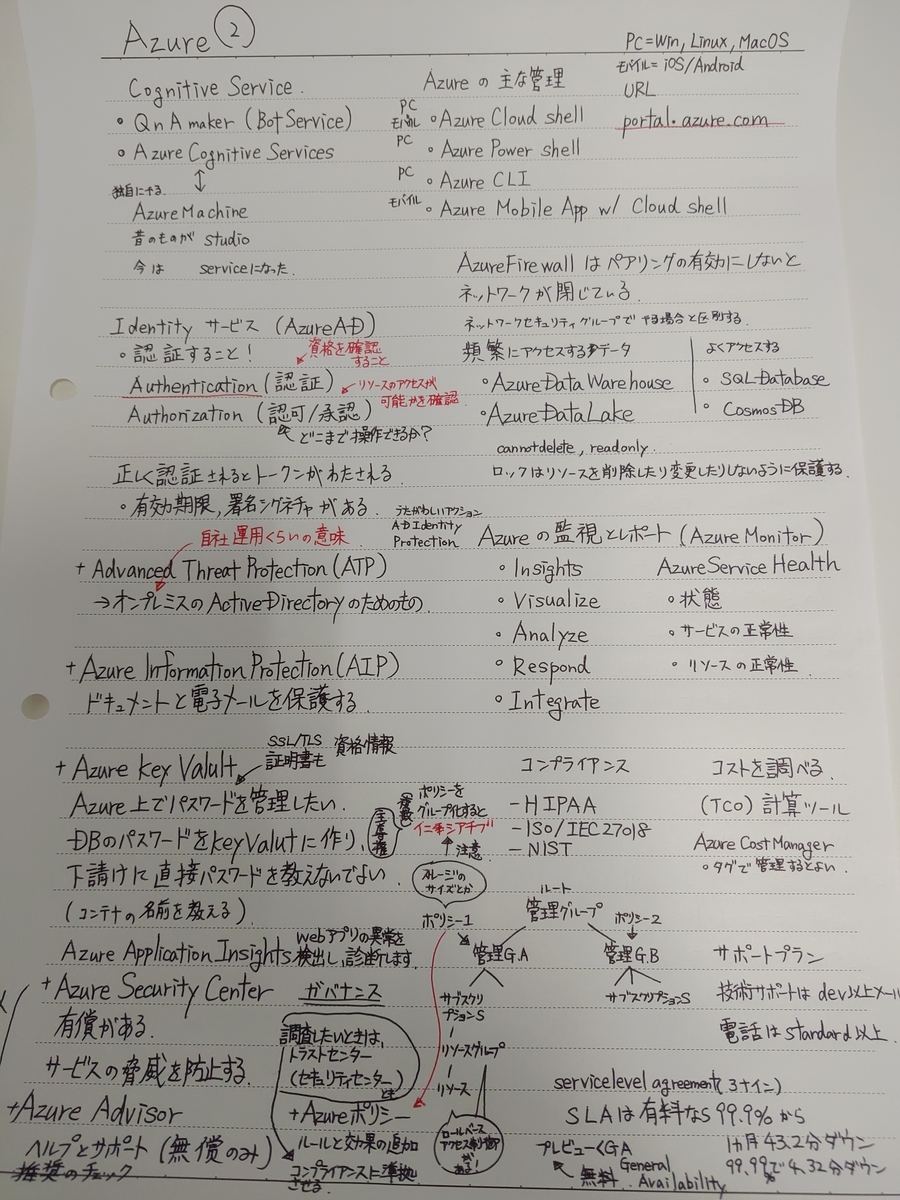 Azure ②
PC=Win, Linux, MacOS
モバイル=iOS/Android
URL
portal.azure.com
Cognitive Service.
• QnA maker (Bot Service)
• Azure Cognitive Services
↕
独自にやる
Azure Machine
昔のものが studio
今は serviceになった.
Azureの主な管理
PC モバイル • Azure Cloud shell
PC • Azure Power shell
PC • Azure CLI
モバイル • Azure Mobile App w/ Cloud shell
AzureFirewallはペアリングの有効にしないと
ネットワークが閉じている.
ネットワークセキュリティグループでやる場合と区別する.
Identity サービス (AzureAD)
• 認証すること!
資格を確認
すること
Authentication (認証)
リソースのアクセスが
可能かを確認
Authorization (認可/承認)
どこまで操作できるか?
正しく認証されるとトークンがわたされる
• 有効期限,署名シグネチャがある.
頻繁にアクセスするデータ
• Azure Data Warehouse
• Azure Data Lake
よくアクセスする
• SQL Database
• Cosmos DB
cannotdelete, readonly.
ロックはリソースを削除したり変更したりしないように保護する.
うたがわしいアクション
AD Identity
Protection
自社運用くらいの意味
+ Advanced Threat Protection (ATP)
→オンプレミスのActiveDirectoryのためのもの.
+ Azure Information Protection (AIP)
ドキュメントと電子メールを保護する.
Azureの監視とレポート (Azure Monitor)
• Insights
• Visualize
• Analyze
• Respond
• Integrate
Azure Service Health
• 状態
• サービスの正常性
• リソースの正常性
SSL/TLS
証明書も
資格情報
+ Azure Key Valult
Azure上でパスワードを管理したい.
DBのパスワードをKeyValutに作り,
下請けに直接パスワードを教えないでよい.
(コンテナの名前を教える).
ポリシーを
グループ化すると
イニシアチブ
↑注意
コンプライアンス
- HIPAA
- ISO/IEC27018
- NIST
コストを調べる.
(TCO) 計算ツール
Azure Cost Manager
• タグで管理するとよい.
ストレージの
サイズとか
ポリシー1
ルート
管理グループ
ポリシー2
管理G.A
管理G.B
サブスクリ
プションS
サブスクリプションS
リソースグループ
リソース
Azure Application Insights
Webアプリの異常を
検出し,診断します.
+ Azure Security Center
有償がある.
サービスの脅威を防止する.
+Azure Advisor
ヘルプとサポート (無償のみ)
推奨のチェック
ガバナンス
調査したいときは,
トラストセンター
(セキュリティセンター)
とは
+Azureポリシー
ルールと効果の追加
コンプライアンスに準拠
させる.
ロールベース
アクセス制御
がある!
サポートプラン
技術サポートはdev以上メール
電話はstandard以上.
service level agreement (3ナイン)
SLAは有料なら99.9%から
1ヵ月43.2分ダウン
99.99%で4.32分ダウン
プレビュー<GA
無料.
General
Availability